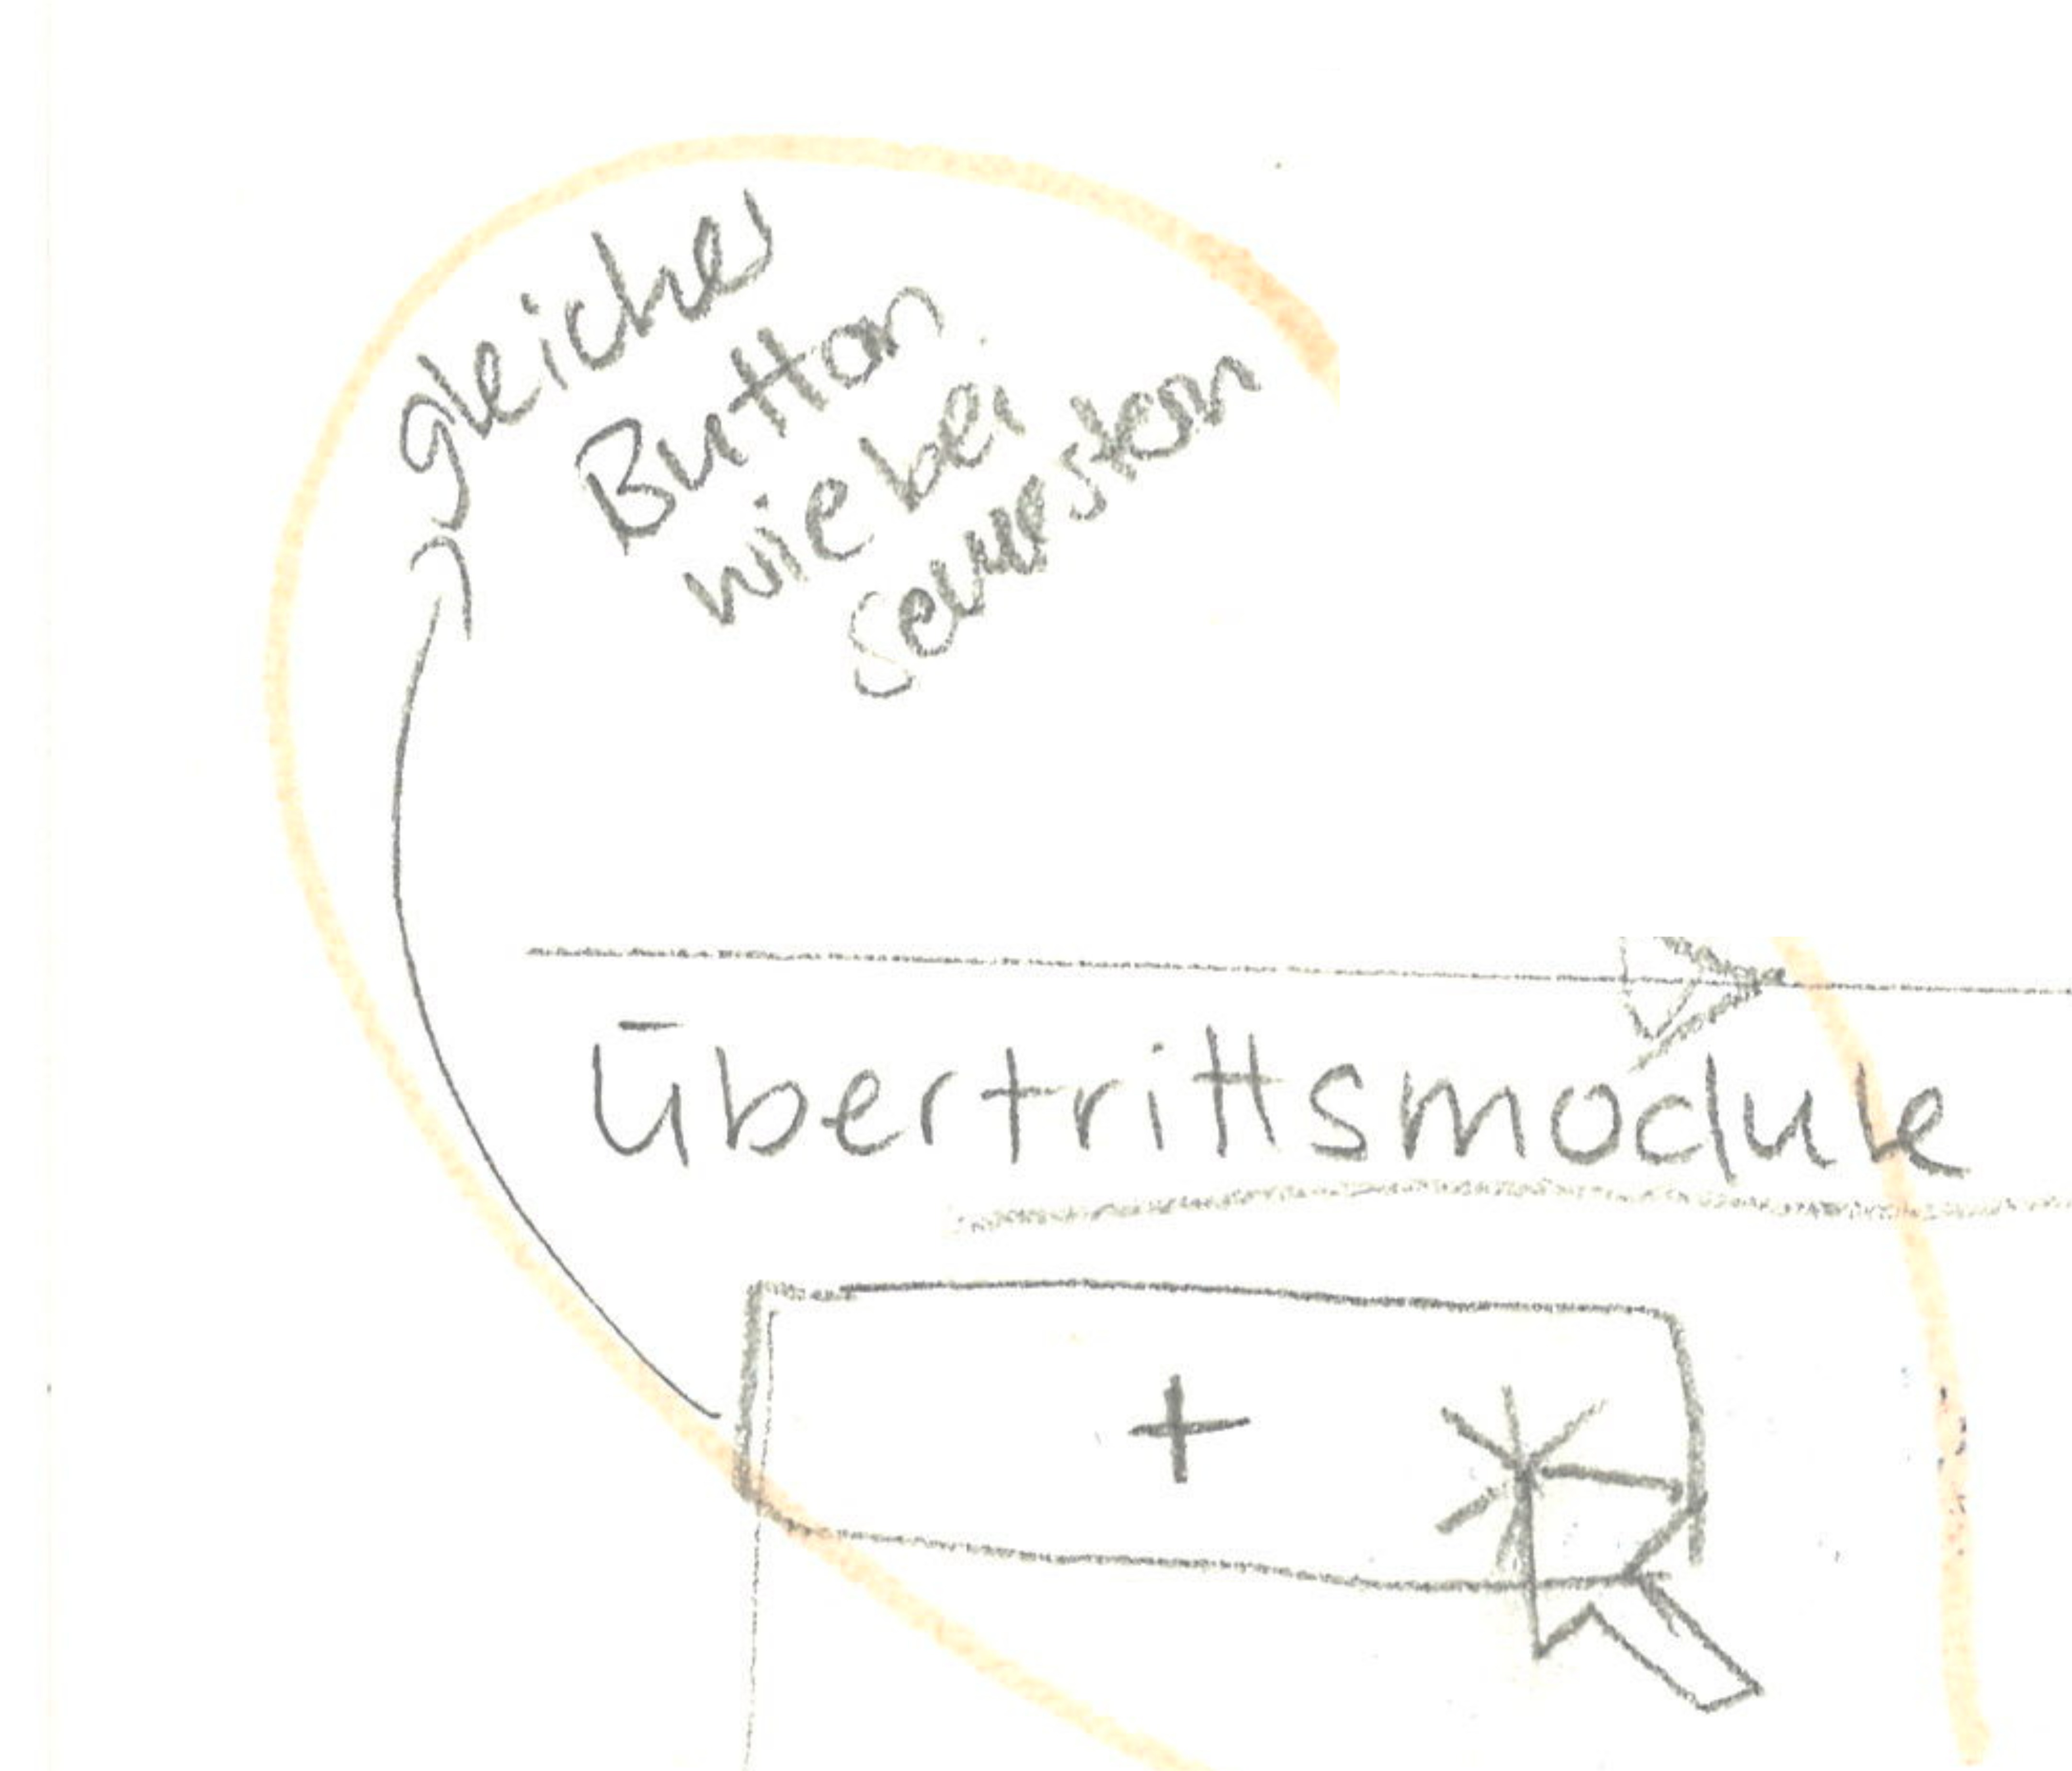 gleicher
Button
wie bei
Semestern
Übertrittsmodule
+